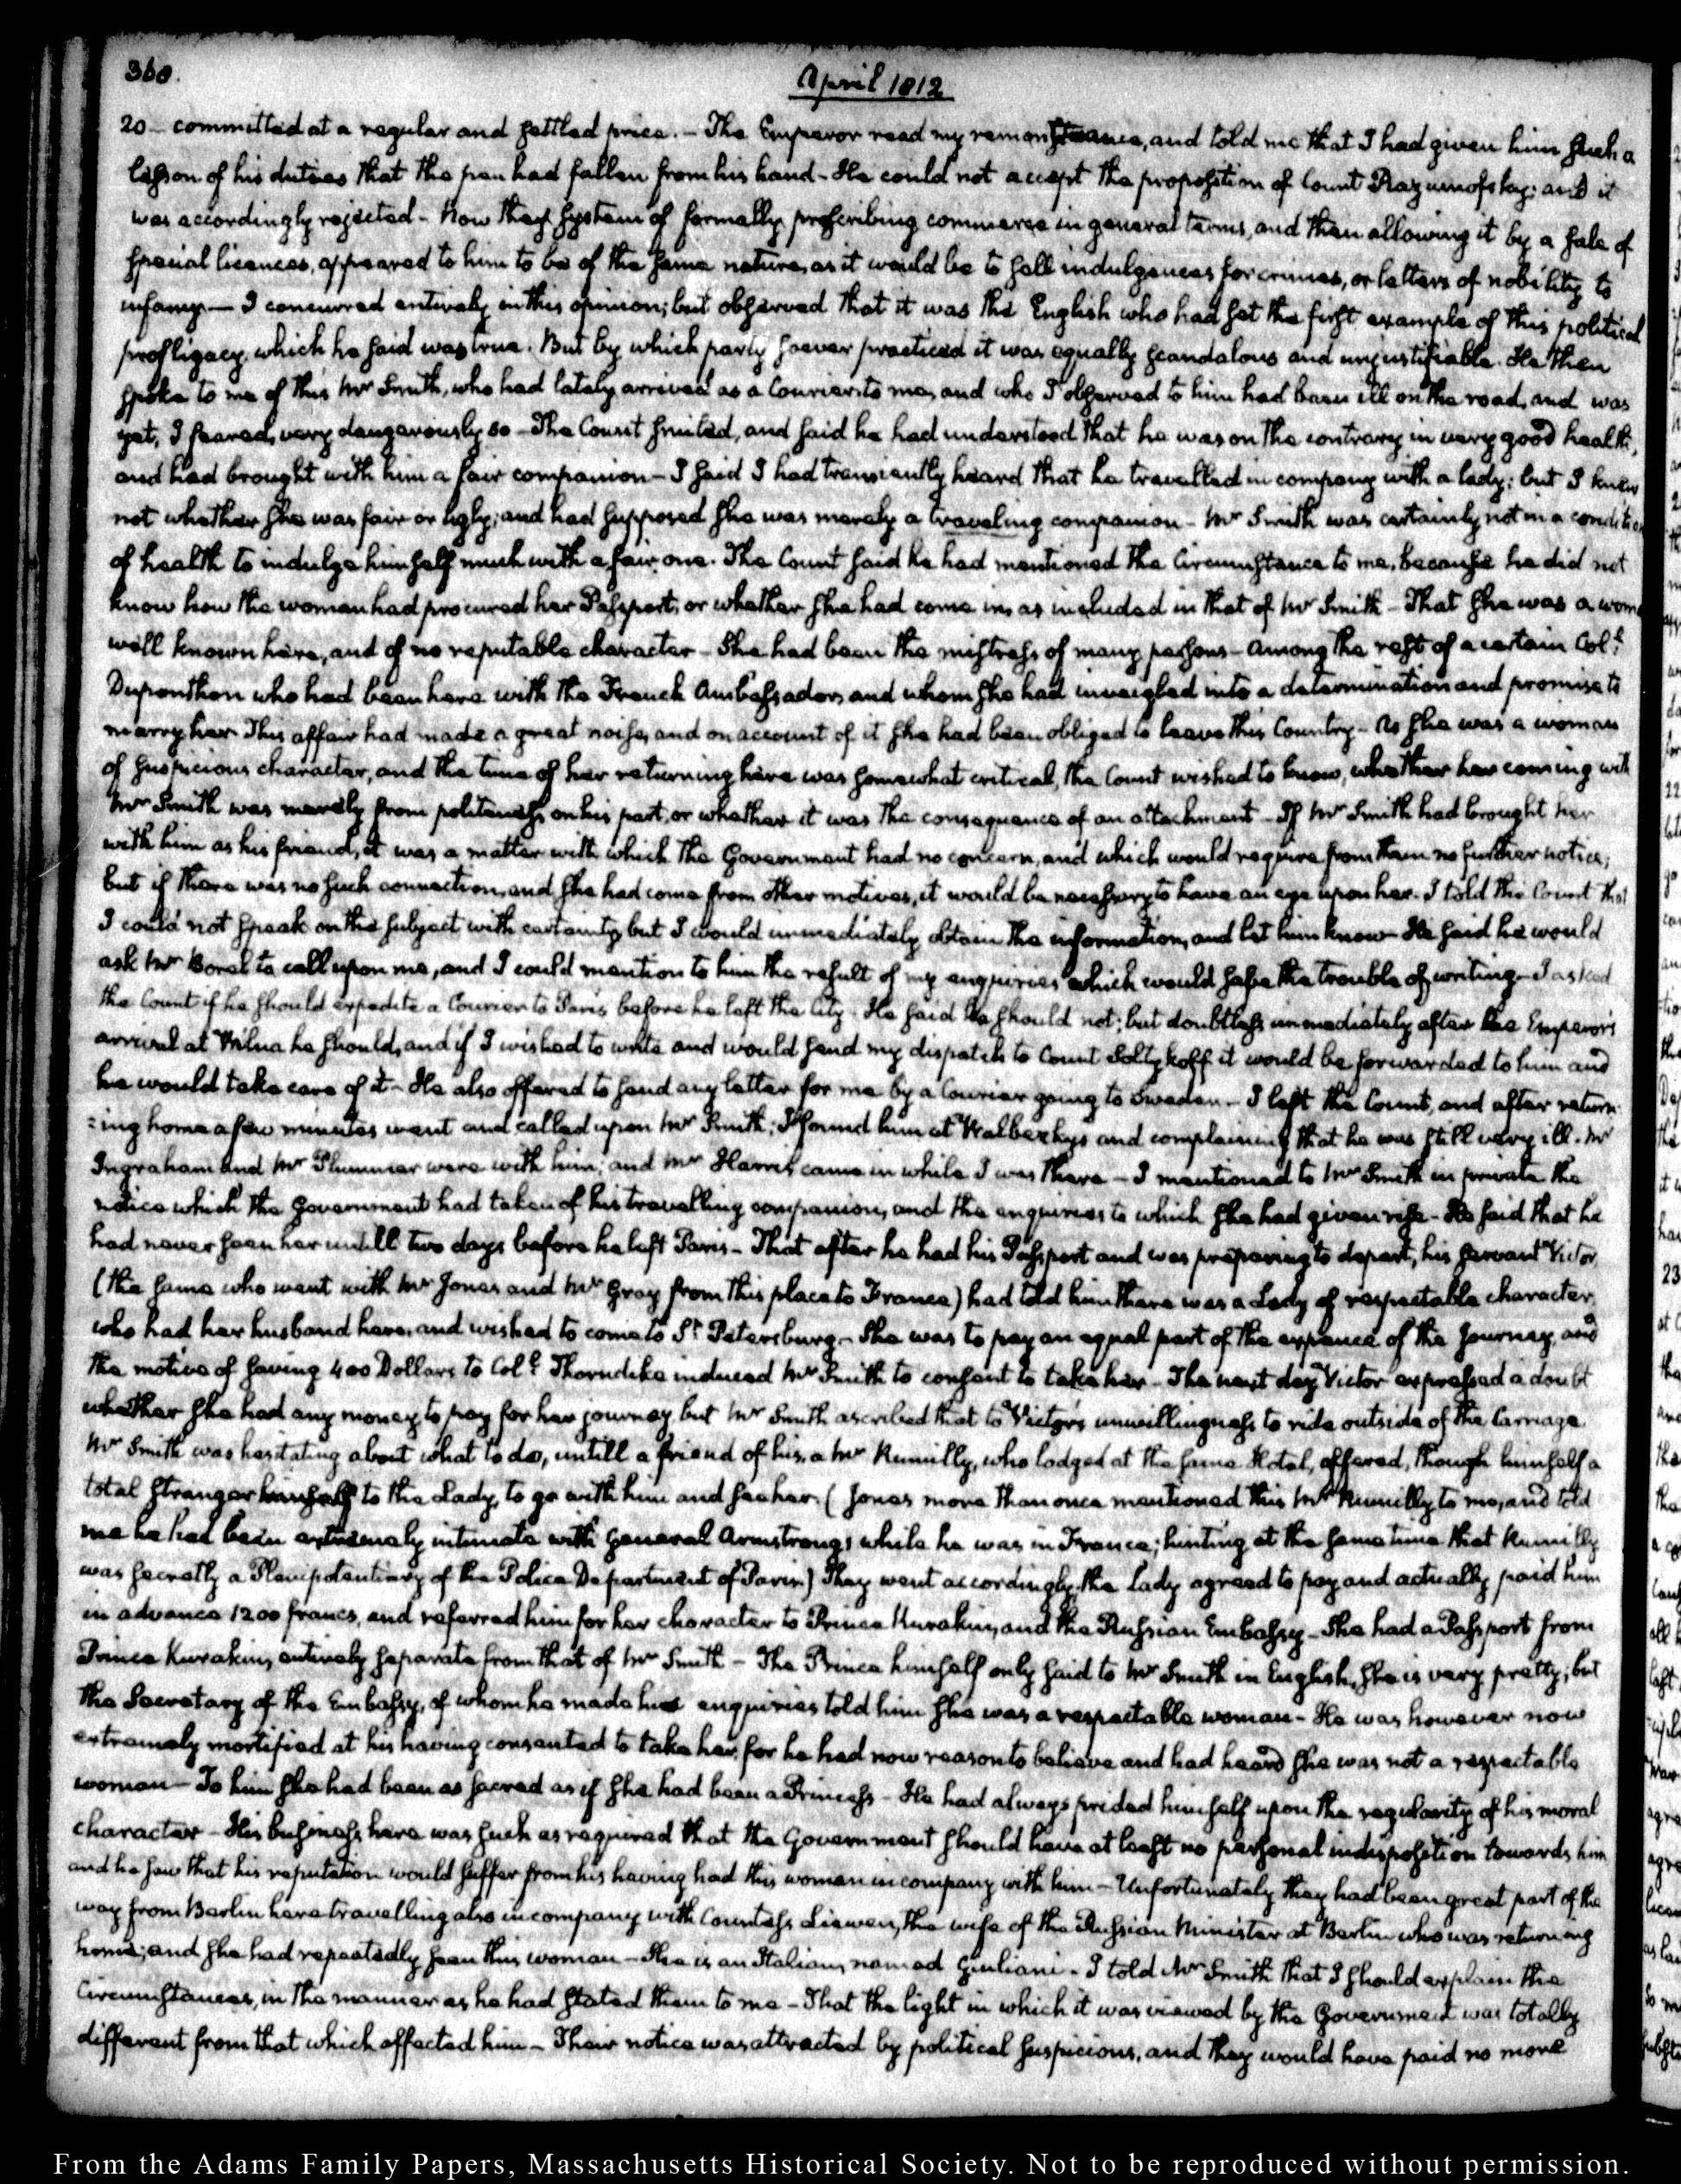 360.
April 1812
20 - committed at a regular and settled price. - The Emperor read my remonstrance, and told me that I had given him such a
lesson of his duties that the pen had fallen from his hand - He could not accept the proposition of Count Razumofsky; and it
was accordingly rejected - Now they system of formally proscribing commerce in general terms, and then allowing it by a sale of
special licences, appeared to him to be of the same nature, as it would be to sell indulgences for crimes, or letters of nobility to
infamy. - I concurred entirely in this opinion; but observed that it was the English who had set the first example of this political
profligacy, which he said was true. But by which party soever practiced it was equally scandalous and unjustifiable. He then
spoke to me of this Mr Smith, who had lately arrived as a Courier to me, and who I observed to him had been ill on the road, and was
yet, I feared, very dangerously so - The Count smiled, and said he had understood that he was on the contrary in very good health,
and had brought with him a fair companion - I said I had transiently heard that he travelled in company with a lady; but I knew
not whether she was fair or ugly; and had supposed she was merely a traveling companion - Mr Smith was certainly not in a condition
of health to indulge himself much with a fair one. The Count said he had mentioned the Circumstance to me, because he did not
know how the woman had procured her Passport, or whether she had come in, as included in that of Mr Smith - That she was a woman
well known here, and of no reputable character - She had been the mistress of many persons - Among the rest of a certain Coll
Duponthon who had been here with the French Ambassador, and whom she had inveigled into a determination and promise to
marry her. This affair had made a great noise, and on account of it she had been obliged to leave this Country - As she was a woman
of suspicious character, and the time of her returning here was somewhat critical, the Count wished to know, whether her coming with
Mr Smith was merely from politeness on his part, or whether it was the consequence of an attachment - If Mr Smith had brought her
with him as his friend, it was a matter with which the Government had no concern, and which would require from them no further notice;
but if there was no such connection, and she had come from other motives, it would be necessary to have an eye upon her. I told the Count that
I could not speak on the subject with certainty, but I would immediately obtain the information, and let him know - He said he would
ask Mr Borel to call upon me, and I could mention to him the result of my enquiries which would save the trouble of writing - I asked
the Count if he should expedite a Courier to Paris before he left the City. He said he should not; but doubtless immediately after the Emperor's
arrival at Wilna he should, and if I wished to write and would send my dispatch to Count Soltykoff it would be forwarded to him and
he would take care of it - He also offered to send any letter for me by a Courier going to Sweden. - I left the Count, and after return-
:ing home a few minutes went and called upon Mr Smith; I found him at and complaining that he was still very ill. Mr
Ingraham and Mr Plummer were with him; and Mr Harris came in while I was there - I mentioned to Mr Smith in private the
notice which the Government had taken of his travelling companion, and the enquiries to which she had given rise - He said that he
had never seen her untill two days before he left Paris - That after he had his Passport and was preparing to depart, his servant Victor,
(the same who went with Mr Jones and Mr Gray from this place to France) had told him there was a Lady of respectable character,
who had her husband here, and wished to come to St. Petersburg - She was to pay an equal part of the expence of the Journey, and
the motive of saving 400 Dollars to Coll Thorndike induced Mr Smith to consent to take her - The next day Victor expressed a doubt
whether she had any money to pay for her journey but Mr Smith ascribed that to Victor's unwillingness to ride outside of the Carriage.
Mr Smith was hesitating about what to do, untill a friend of his, a Mr Rumilly, who lodged at the same Hotel, offered, though himself a
total stranger himself to the Lady, to go with him and see her. (Jones more than once mentioned this Mr Rumilly to me, and told
me he had been extremely intimate with General Armstrong, while he was in France; hinting at the same time that Rumilly
was secretly a Plenipotentiary of the Police Department of Paris) They went accordingly, the Lady agreed to pay and actually paid him
in advance 1200 francs, and referred him for her character to Prince Kurakin, and the Russian Embassy - She had a Passport from
Prince Kurakin, entirely separate from that of Mr Smith - The Prince himself only said to Mr Smith in English, She is very pretty; but
the Secretary of the Embassy, of whom he made his enquiries told him she was a respectable woman - He was however now
extremely mortified at his having consented to take her, for he had now reason to believe and had heard she was not a respectable
woman - To him she had been as sacred as if she had been a Princess - He had always prided himself upon the regularity of his moral
character - His business here was such as required that the Government should have at least no personal indisposition towards him
and he saw that his reputation would suffer from his having had this woman in company with him - Unfortunately they had been great part of the
way from Berlin here travelling also in company with Countess Liewen, the wife of the Russian Minister at Berlin who was returning
home; and she had repeatedly seen this woman - She is an Italian, named Giuliani - I told Mr Smith that I should explain the
Circumstances, in the manner as he had stated them to me - That the light in which it was viewed by the Government was totally
different from that which affected him - Their notice was attracted by political suspicions, and they would have paid no more
From the Adams Family Papers, Massachusetts Historical Society. Not to be reproduced without permission.